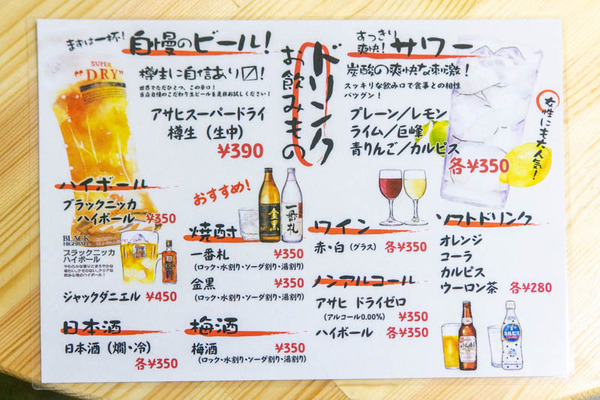 まずは一杯!
自慢のビール!
SUPER
"DRY"
樽生に自信あり〼!
世界でただひとつ、この辛口!
アサヒスーパードライ
樽生(生中)
¥390
ドリンク
お飲みもの
すっきり爽快!
サワー
炭酸の爽快な刺激!
スッキリな飲み口で食事との相性
バツグン!
プレーン/レモン
ライム/巨峰
青りんご/カルピス
各¥350
女性にも大人気!
ハイボール
ブラックニッカ
ハイボール ¥350
BLACK
HIGHBALL
ブラックニッカ
ハイボール
ジャックダニエル ¥450
日本酒
日本酒(燗・冷)
各¥350
おすすめ!
金黒
一番札
焼酎
一番札 ¥350
(ロック・水割り・ソーダ割り・湯割り)
金黒 ¥350
(ロック・水割り・ソーダ割り・湯割り)
梅酒
梅酒 ¥350
(ロック・水割り・ソーダ割り・湯割り)
ワイン
赤・白(グラス) 各¥350
ノンアルコール
アサヒ ドライゼロ
(アルコール0.00%) ¥350
ハイボール 各¥350
ソフトドリンク
オレンジ
コーラ
カルピス
ウーロン茶 各¥280